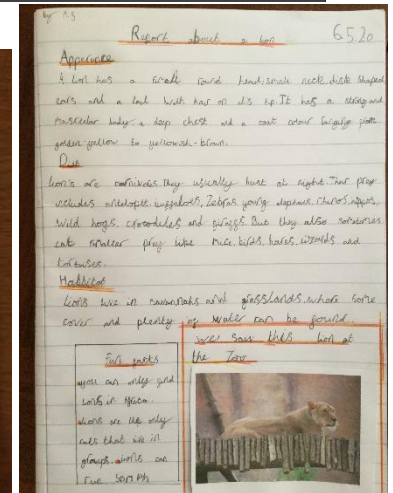 by A.S
Report about a lion 6.5.20
Apperance
A lion has a small round head, small neck, disk shaped
ears and a tail with hair on it's tip. It has a strong and
muscular body, a deep chest and a coat colour
golden yellow to yellowish-brown.
Diet
Lion's are carnivores. They usually hunt at night. Their prey
includes antelopes, buffaloes, Zebras, young elephants, rhinos, hippos,
wild hogs, crocodiles and giraffs. But they also sometimes
eat smaller prey like mice, birds, hares, lizards and
tortoises.
Habbitat
Lions live in savannahs and grasslands where some
cover and plenty of water can be found.
Fun facts
you can only find
lions in Africa.
Lions are the only
cats that live in
groups. Lions can
run 50mph
we saw this lion at
the Zoo